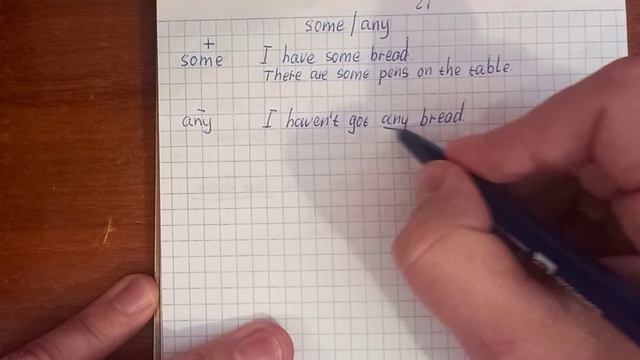 some/any
+
some I have some bread.
There are some pens on the table.
-
any I haven't got any bread.